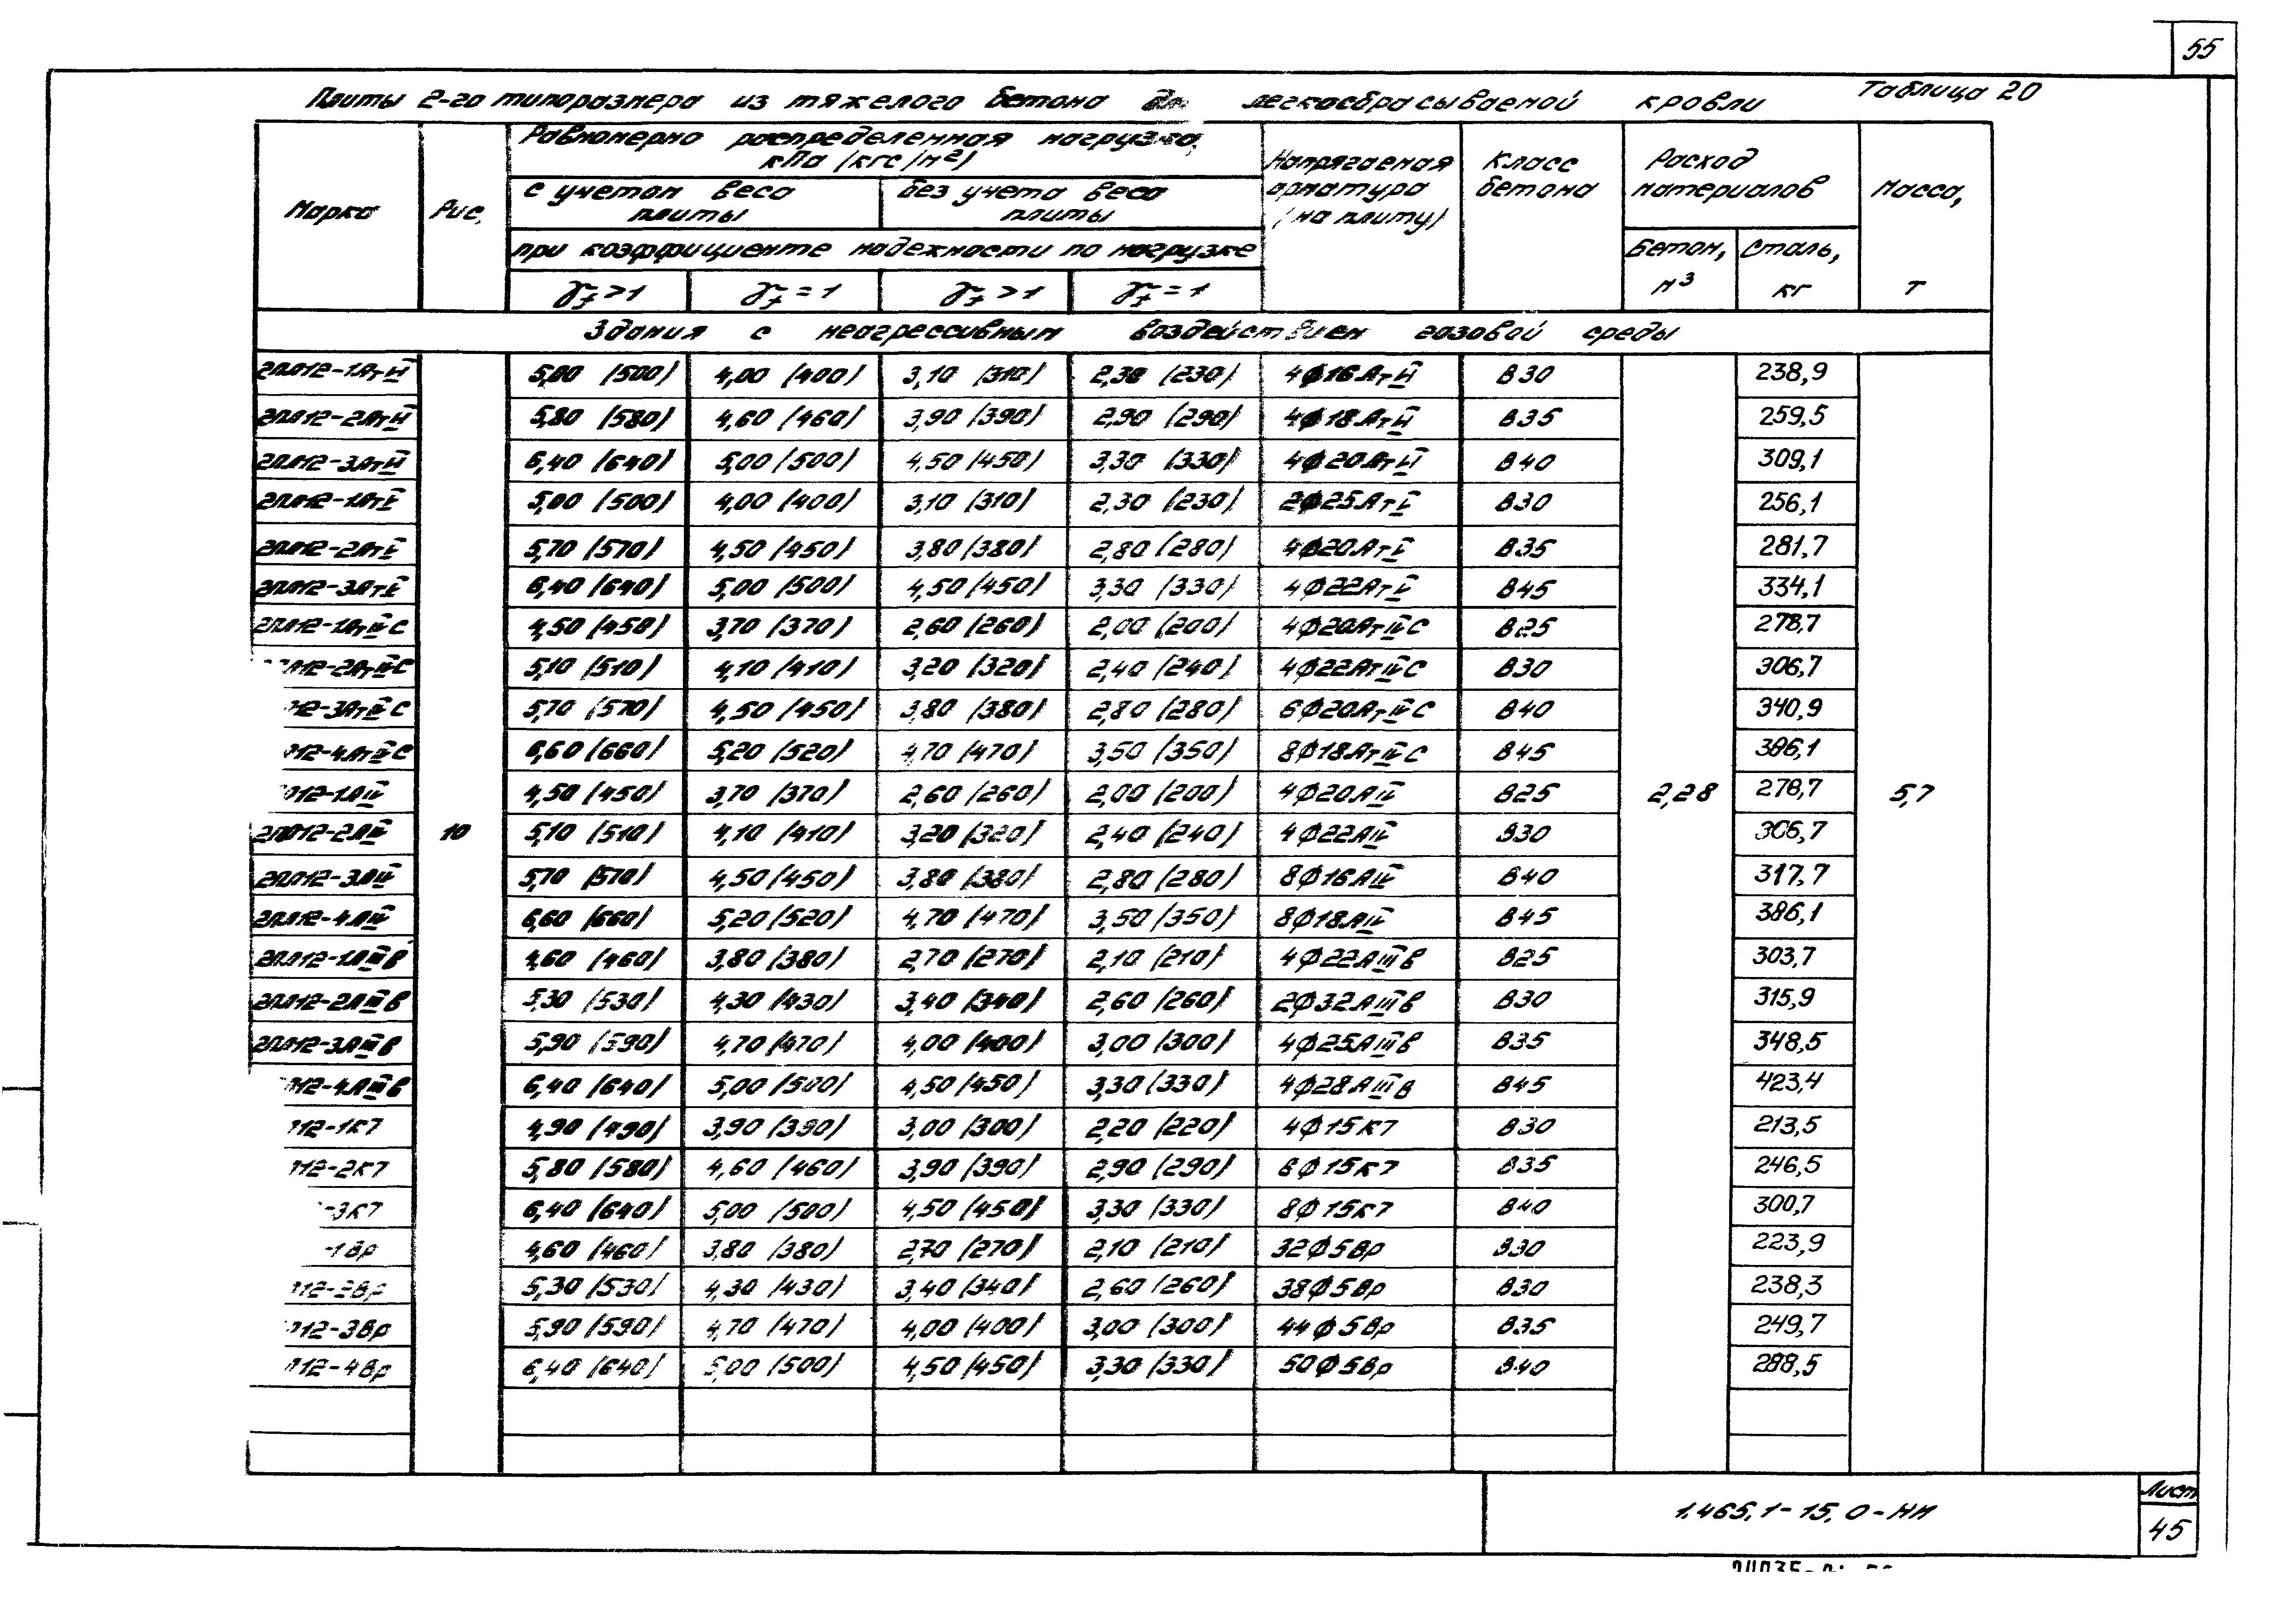 55
Плиты 2-го типоразмера из тяжелого бетона для легкосбрасываемой кровли Таблица 20
Марка Рис. Равномерно распределенная нагрузка, кПа (кгс/м²) Напрягаемая арматура (на плиту) Класс бетона Расход материалов Масса, т
с учетом веса плиты без учета веса плиты
при коэффициенте надежности по нагрузке Бетон, м³ Сталь, кг
γf >1 γf =1 γf >1 γf =1
Здания с неагрессивным воздействием газовой среды
2ПЛ12-1АтVI 5,00 (500) 4,00 (400) 3,10 (310) 2,30 (230) 4ф16АтVI В30 238,9
2ПЛ12-2АтVI 5,80 (580) 4,60 (460) 3,90 (390) 2,90 (290) 4ф18АтVI В35 259,5
2ПЛ12-3АтVI 6,40 (640) 5,00 (500) 4,50 (450) 3,30 (330) 4ф20АтVI В40 309,1
2ПЛ12-1АтV 5,00 (500) 4,00 (400) 3,10 (310) 2,30 (230) 2ф25АтV В30 256,1
2ПЛ12-2АтV 5,70 (570) 4,50 (450) 3,80 (380) 2,80 (280) 4ф20АтV В35 281,7
2ПЛ12-3АтV 6,40 (640) 5,00 (500) 4,50 (450) 3,30 (330) 4ф22АтV В45 334,1
2ПЛ12-1АтIVС 4,50 (450) 3,70 (370) 2,60 (260) 2,00 (200) 4ф20АтIVС В25 278,7
Л12-2АтIVС 5,10 (510) 4,10 (410) 3,20 (320) 2,40 (240) 4ф22АтIVС В30 306,7
12-3АтIVС 5,70 (570) 4,50 (450) 3,80 (380) 2,80 (280) 6ф20АтIVС В40 340,9
12-4АтIVС 6,60 (660) 5,20 (520) 4,70 (470) 3,50 (350) 8ф18АтIVС В45 386,1
12-1АIV 4,50 (450) 3,70 (370) 2,60 (260) 2,00 (200) 4ф20АIV В25 2,28 278,7 5,7
2ПЛ12-2АIV 10 5,10 (510) 4,10 (410) 3,20 (320) 2,40 (240) 4ф22АIV В30 306,7
2ПЛ12-3АIV 5,70 (570) 4,50 (450) 3,80 (380) 2,80 (280) 8ф16АIV В40 317,7
2ПЛ12-4АIV 6,60 (660) 5,20 (520) 4,70 (470) 3,50 (350) 8ф18АIV В45 386,1
2ПЛ12-1АIIIв 4,60 (460) 3,80 (380) 2,70 (270) 2,10 (210) 4ф22АIIIв В25 303,7
2ПЛ12-2АIIIв 5,30 (530) 4,30 (430) 3,40 (340) 2,60 (260) 2ф32АIIIв В30 315,9
2ПЛ12-3АIIIв 5,90 (590) 4,70 (470) 4,00 (400) 3,00 (300) 4ф25АIIIв В35 348,5
12-4АIIIв 6,40 (640) 5,00 (500) 4,50 (450) 3,30 (330) 4ф28АIIIв В45 423,4
12-1К7 4,90 (490) 3,90 (390) 3,00 (300) 2,20 (220) 4ф15К7 В30 213,5
12-2К7 5,80 (580) 4,60 (460) 3,90 (390) 2,90 (290) 6ф15К7 В35 246,5
-3К7 6,40 (640) 5,00 (500) 4,50 (450) 3,30 (330) 8ф15К7 В40 300,7
-1Вр 4,60 (460) 3,80 (380) 2,70 (270) 2,10 (210) 32ф5Вр В30 223,9
12-2Вр 5,30 (530) 4,30 (430) 3,40 (340) 2,60 (260) 38ф5Вр В30 238,3
12-3Вр 5,90 (590) 4,70 (470) 4,00 (400) 3,00 (300) 44ф5Вр В35 249,7
12-4Вр 6,40 (640) 5,00 (500) 4,50 (450) 3,30 (330) 50ф5Вр В40 288,5
1.465.1-15. 0-НИ
Лист
45